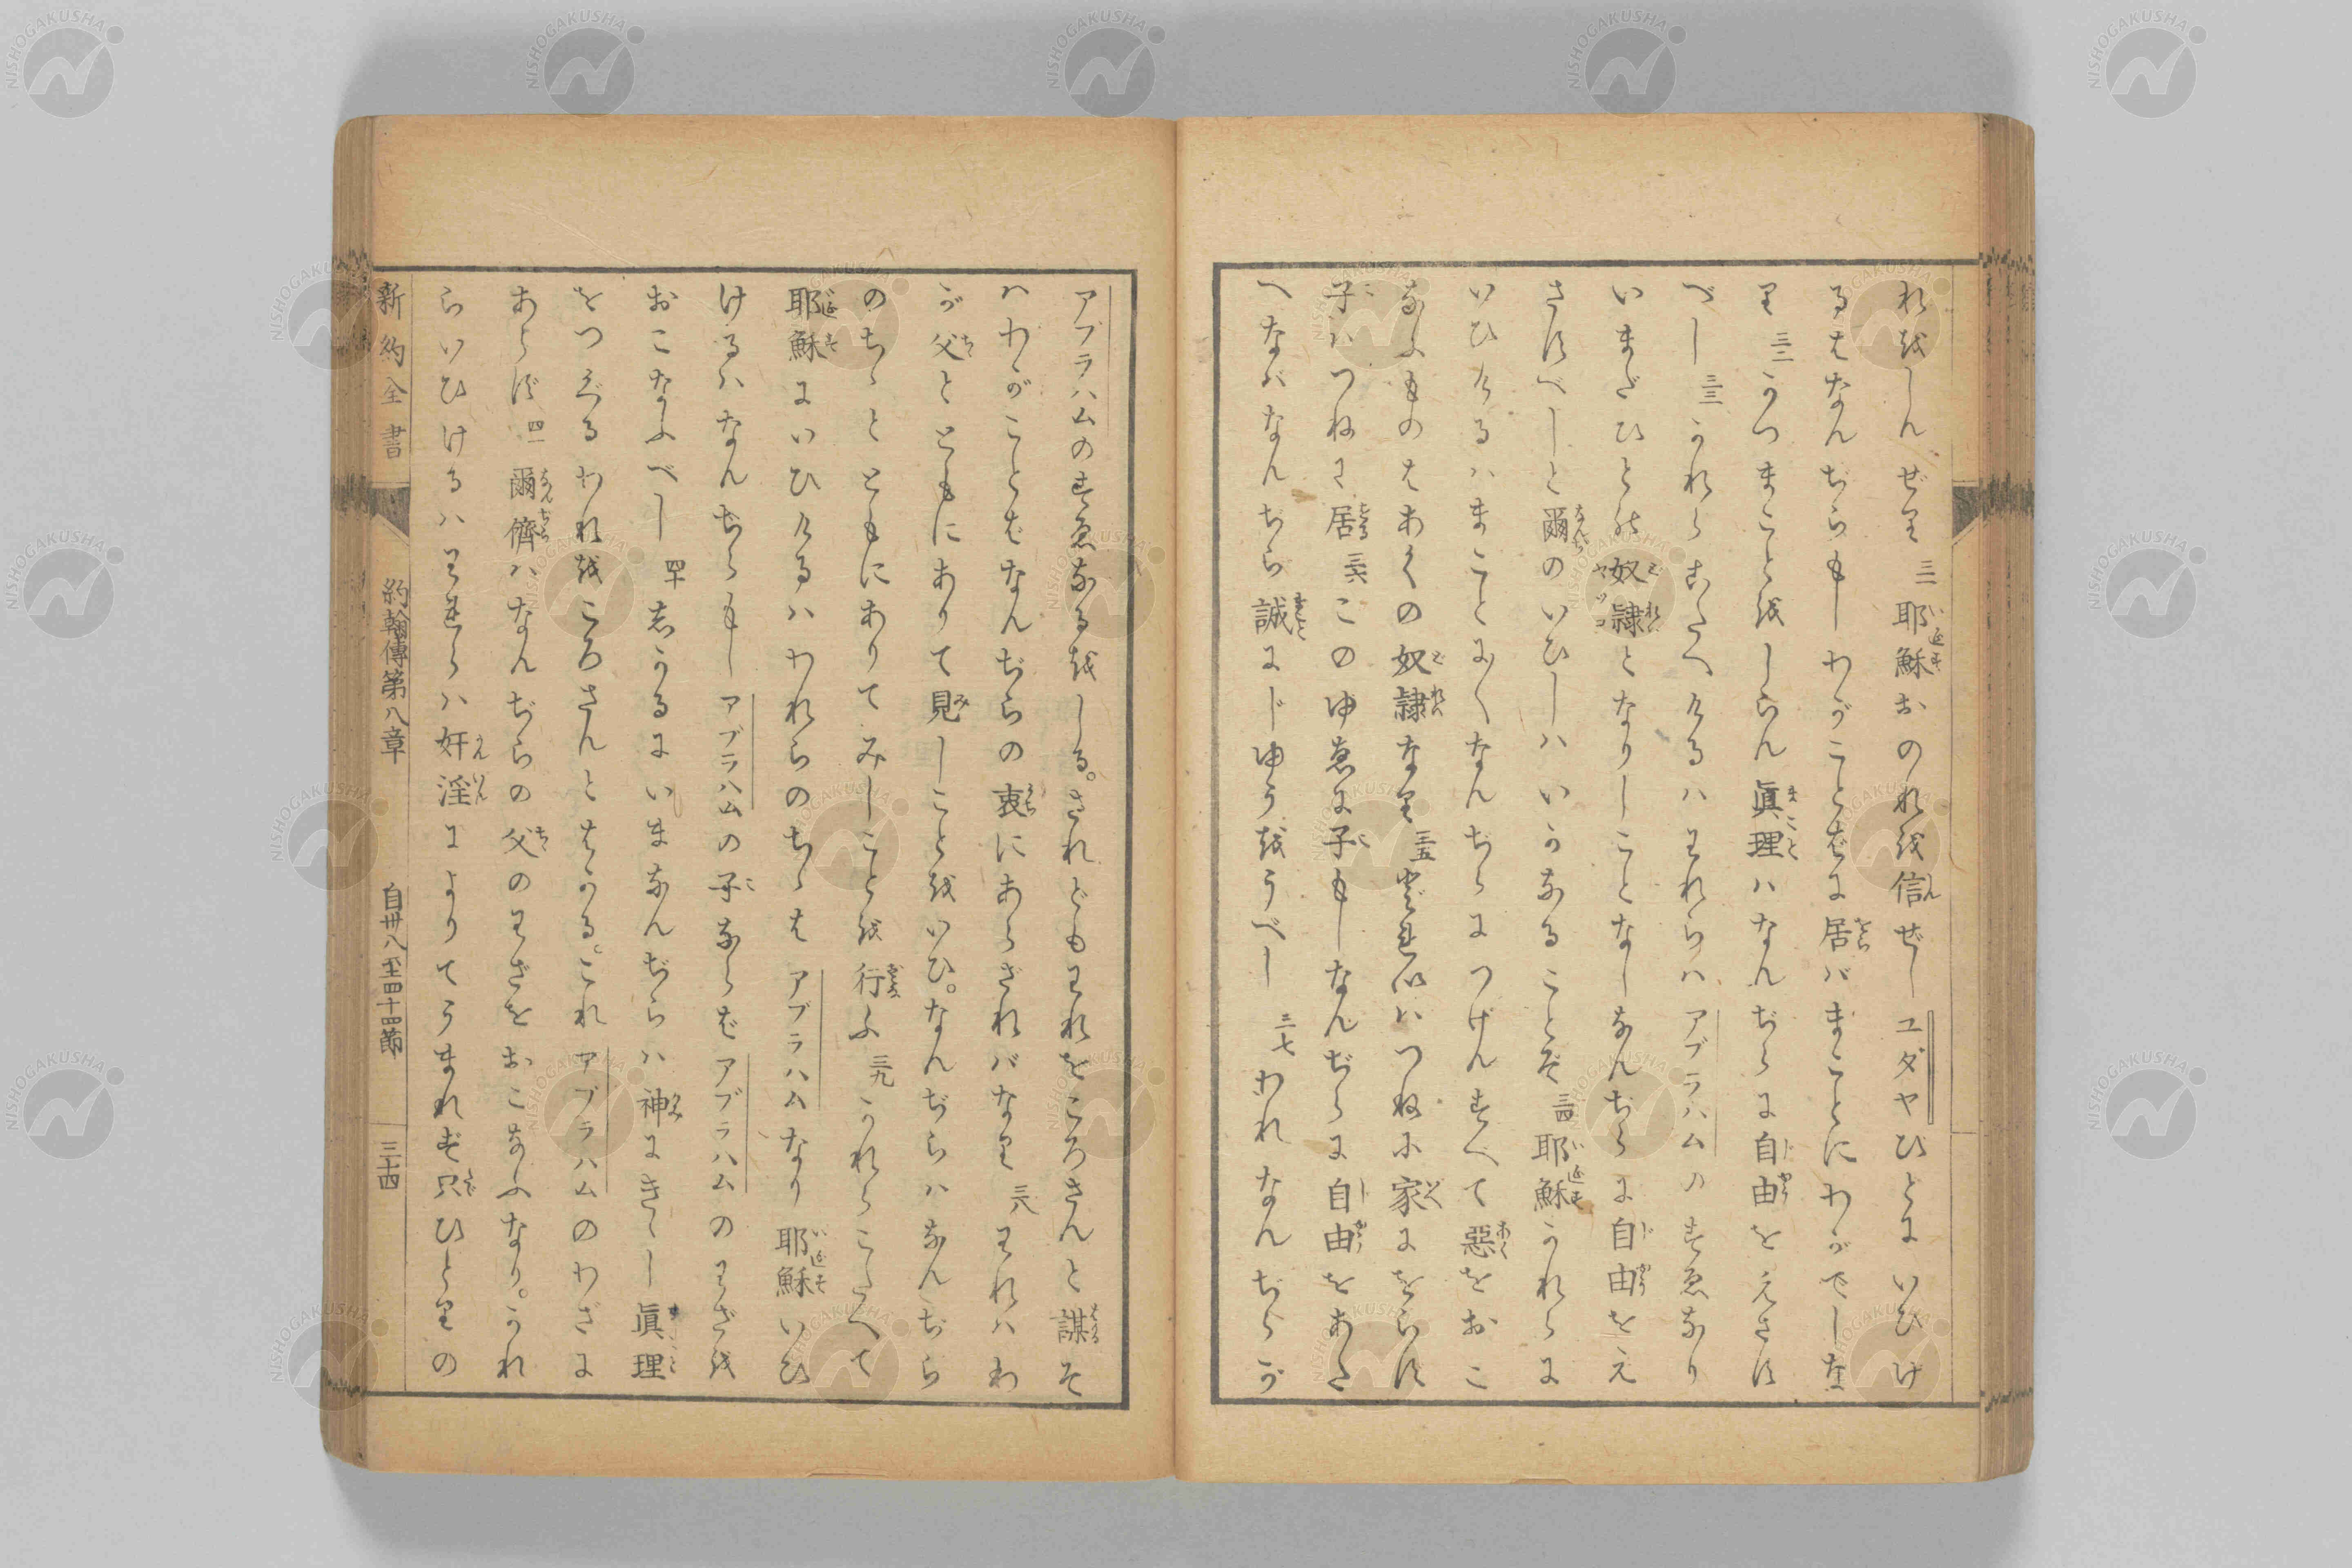 れをしんぜり 三一 耶穌おのれを信ぜしユダヤひとにいひけ
るはなんぢらもしわがことばに居バまことにわがでしな
り 三二 かつまことをしらん眞理ハなんぢらに自由をえさす
べし 三三 かれらこたへけるハわれらハアブラハムのすゑなり
いまだひとの奴隷となりしことなしなんぢらに自由をえ
さすべしと爾のいひしハいかなることぞ 三四 耶穌かれらに
いひけるハまことにまことになんぢらにつげんすべて惡をおこ
なふものはあくの奴隷なり 三五 奴隷ハつねに家にをらず
子ハつねに居 三六 このゆゑに子もしなんぢらに自由をあた
へなバなんぢら誠にじゆうをうべし 三七 われなんぢらが
アブラハムのすゑなるをしる。されどもわれをころさんと謀そ
ハわがことばなんぢらの衷にあらざれバなり 三八 われハわ
が父とともにありて見しことをいひ。なんぢらハなんぢら
のちゝとともにありてみしことを行ふ 三九 かれらこたへて
耶穌にいひけるハわれらのちゝはアブラハムなり耶穌いひ
けるハなんぢらもしアブラハムの子ならばアブラハムのわざを
おこなふべし 四十 しかるにいまなんぢらハ神にきゝし眞理
をつぐるわれをころさんとはかる。これアブラハムのわざに
あらず 四一 爾儕ハなんぢらの父のわざをおこなふなり。かれ
らいひけるハわれらハ奸淫によりてうまれず只ひとりの
新約全書 約翰傳第八章 自卅八至四十四節 三十四
NISHOGAKUSHA